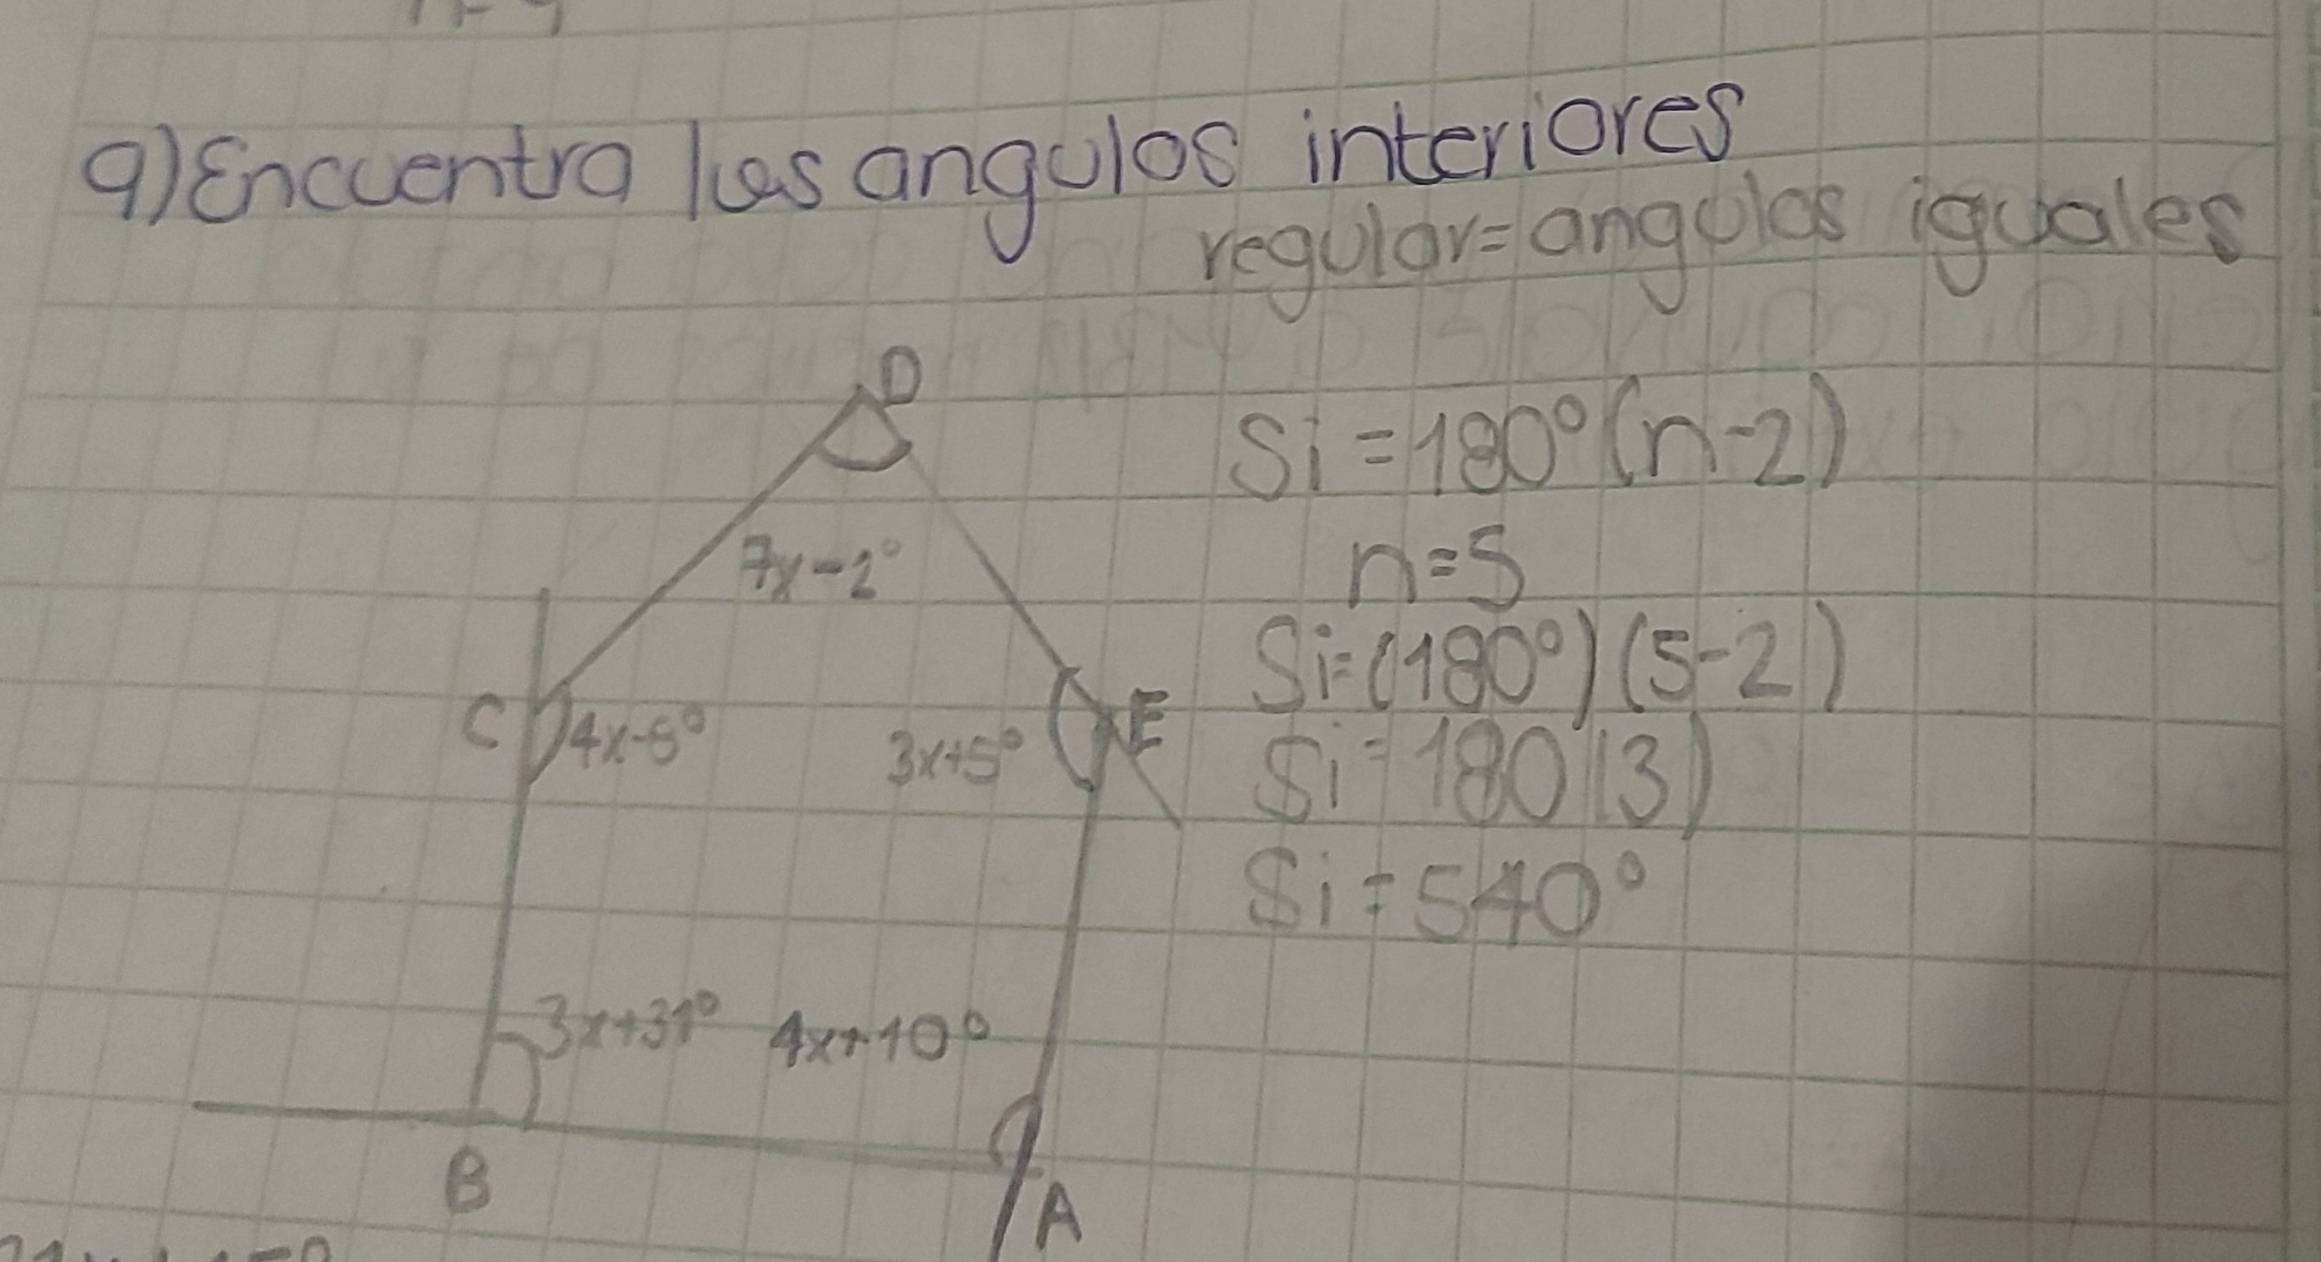 9) Encuentra los angulos interiores
regular = angulos iguales
D
Si = 180° (n-2)
7x-2°
n=5
C
4x-8°
3x+5°
E
Si=(180°) (5-2)
Si = 180 (3)
Si = 540°
3x+31°
4x+10°
B
A